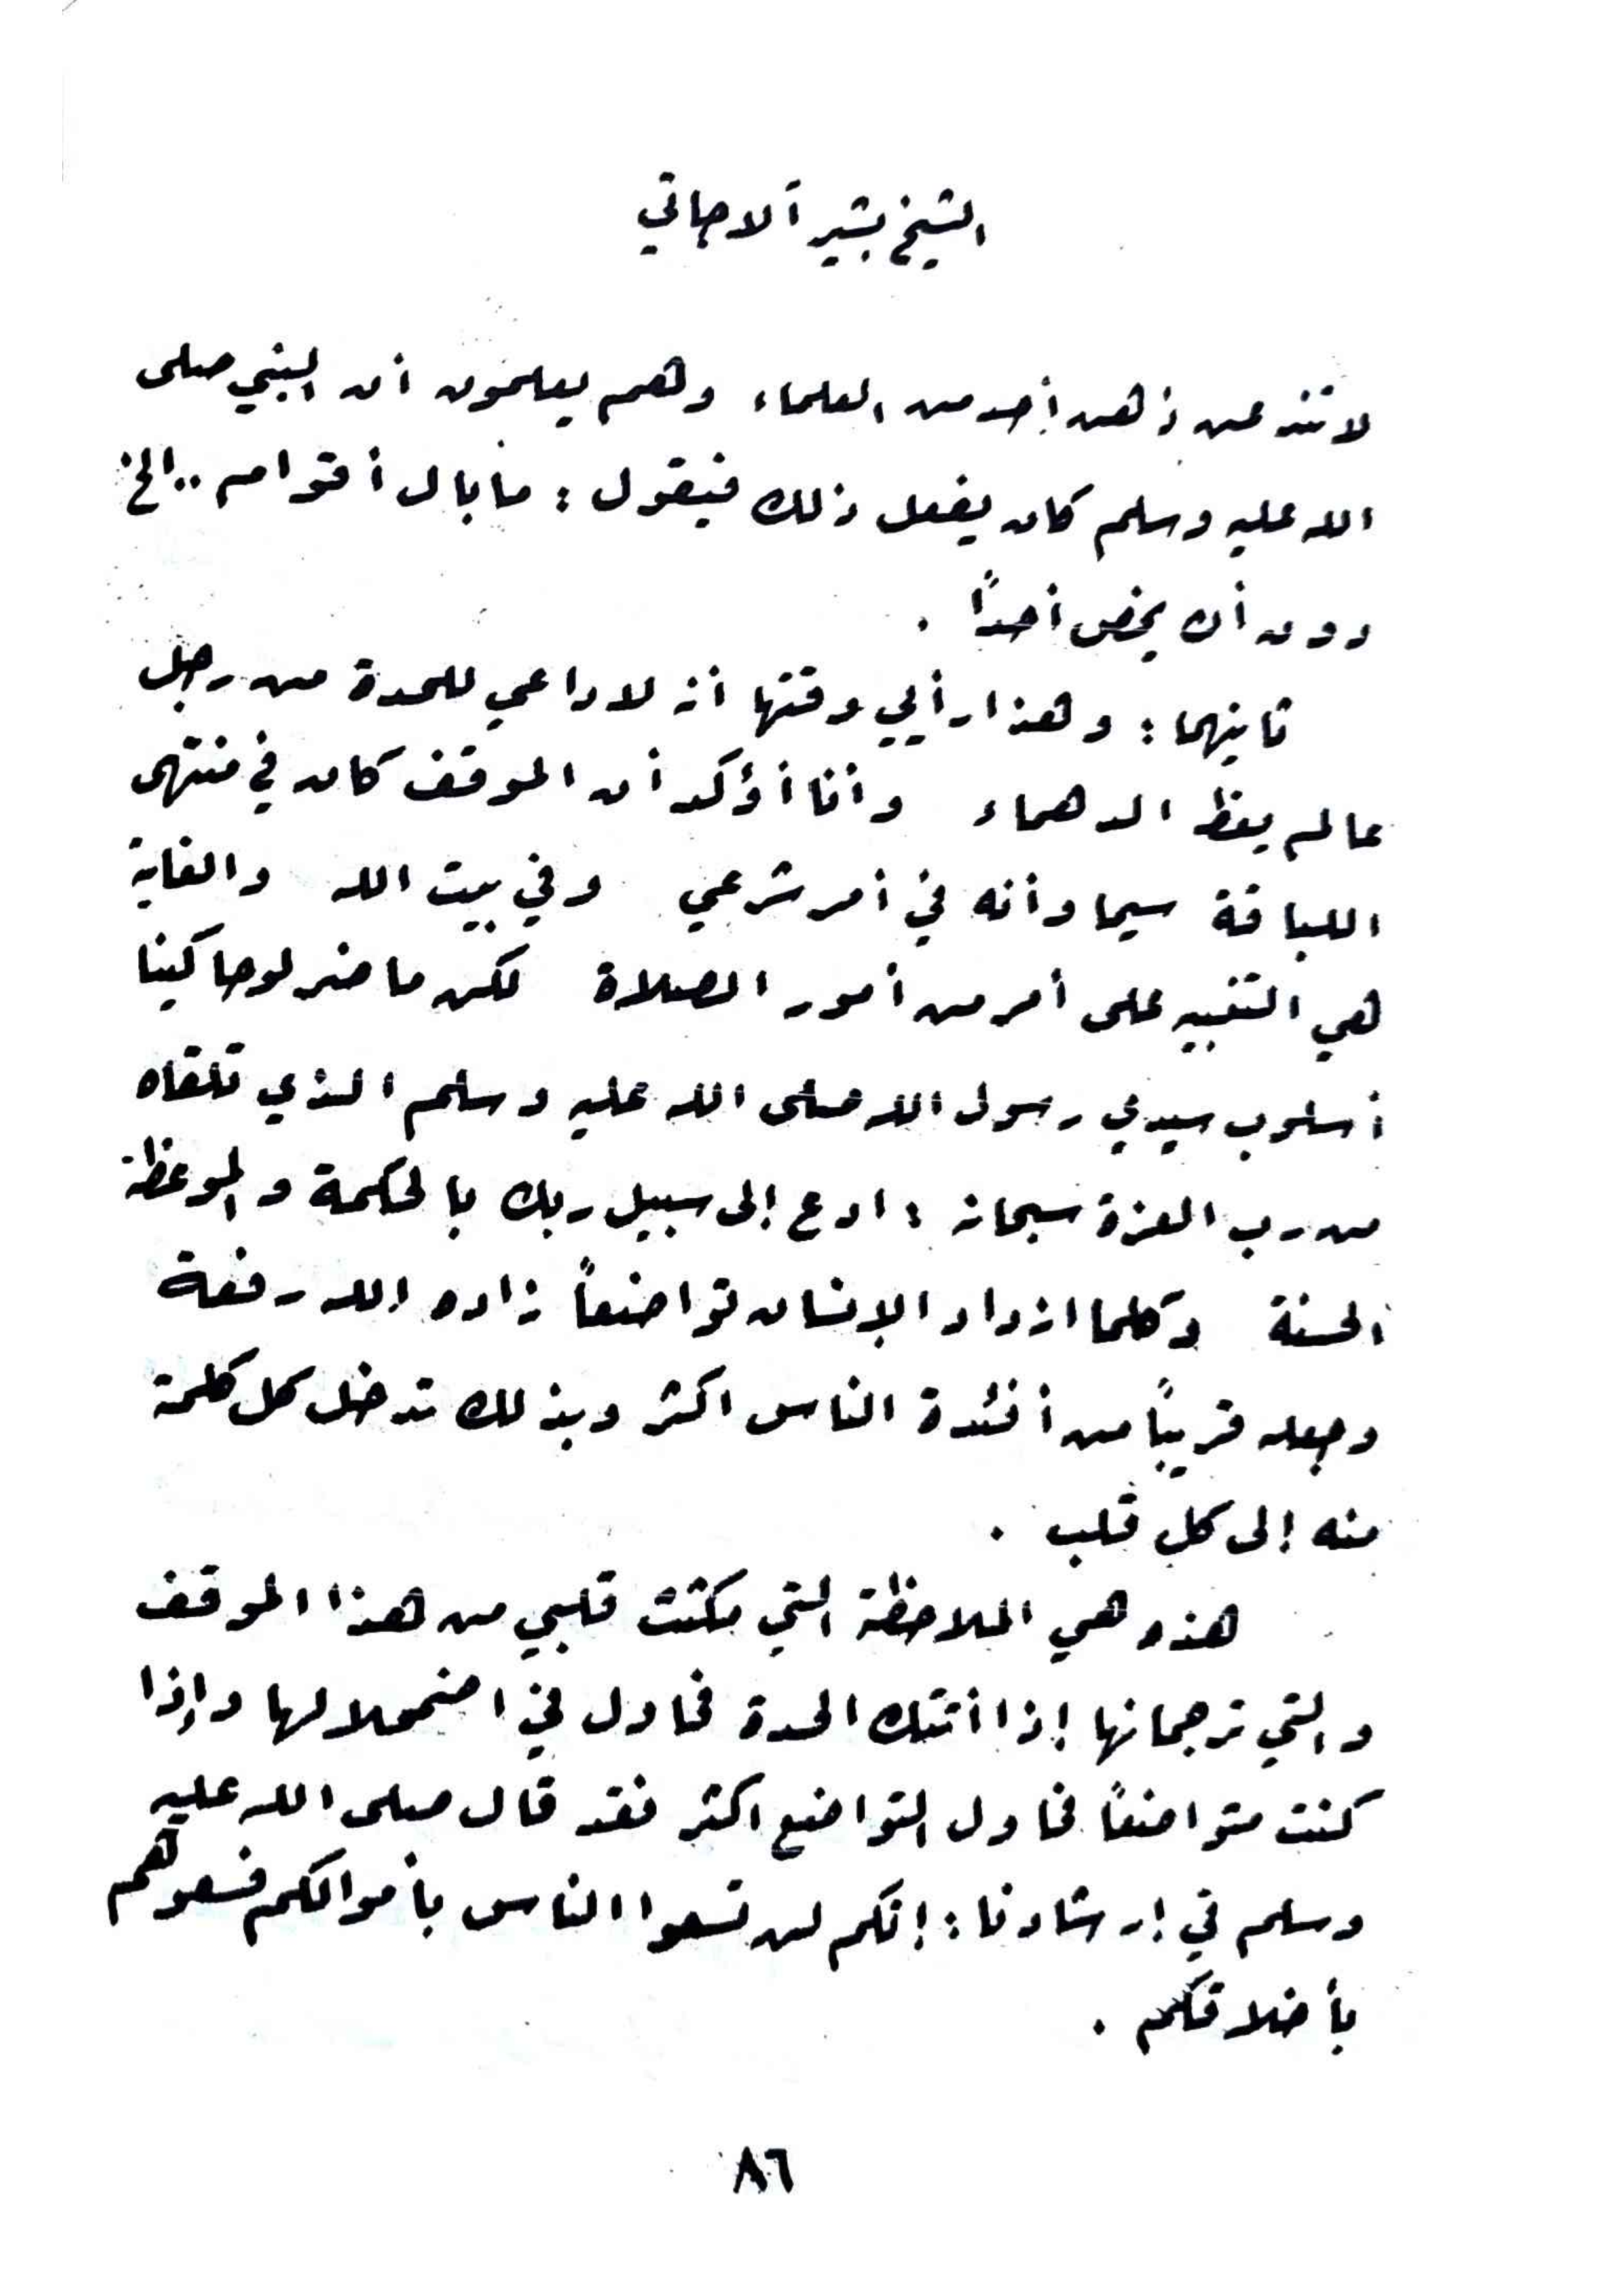 الشيخ بشير آلاجاتي
لا تند عن ذهن أحد من العلماء وهم يعلمون أن النبي صلى
الله عليه وسلم كان يفعل ذلك فيقول : ما بال أقوام .. الخ
دون أن يخص أحداً .
ثانيهما : وهذا رأيي وقتها أنه لا داعي للحدة من رجل
عالم يعظ الدهماء وأنا أؤكد أن الموقف كان في منتهى
اللباقة سيما وأنه في أمر شرعي وفي بيت الله والغاية
هي التنبيه على أمر من أمور الصلاة لكن ما ضر لو حاكينا
أسلوب سيدي رسول الله صلى الله عليه وسلم الذي تلقاه
من رب العزة سبحانه : ادع إلى سبيل ربك بالحكمة والموعظة
الحسنة وكلما ازداد الإنسان تواضعاً زاده الله رفعة
وجعله قريباً من أفئدة الناس اكثر وبذلك تدخل كل كلمة
منه إلى كل قلب .
هذه هي الملاحظة التي مكثت قلبي من هذا الموقف
والتي ترجمانها إذا أتتك الحدة فحاول في اضمحلالها وإذا
كنت متواضعاً فحاول التواضع اكثر فقد قال صلى الله عليه
وسلم في إرشادنا : إنكم لن تسعوا الناس بأموالكم فسعوهم
بأخلاقكم .
٨٦